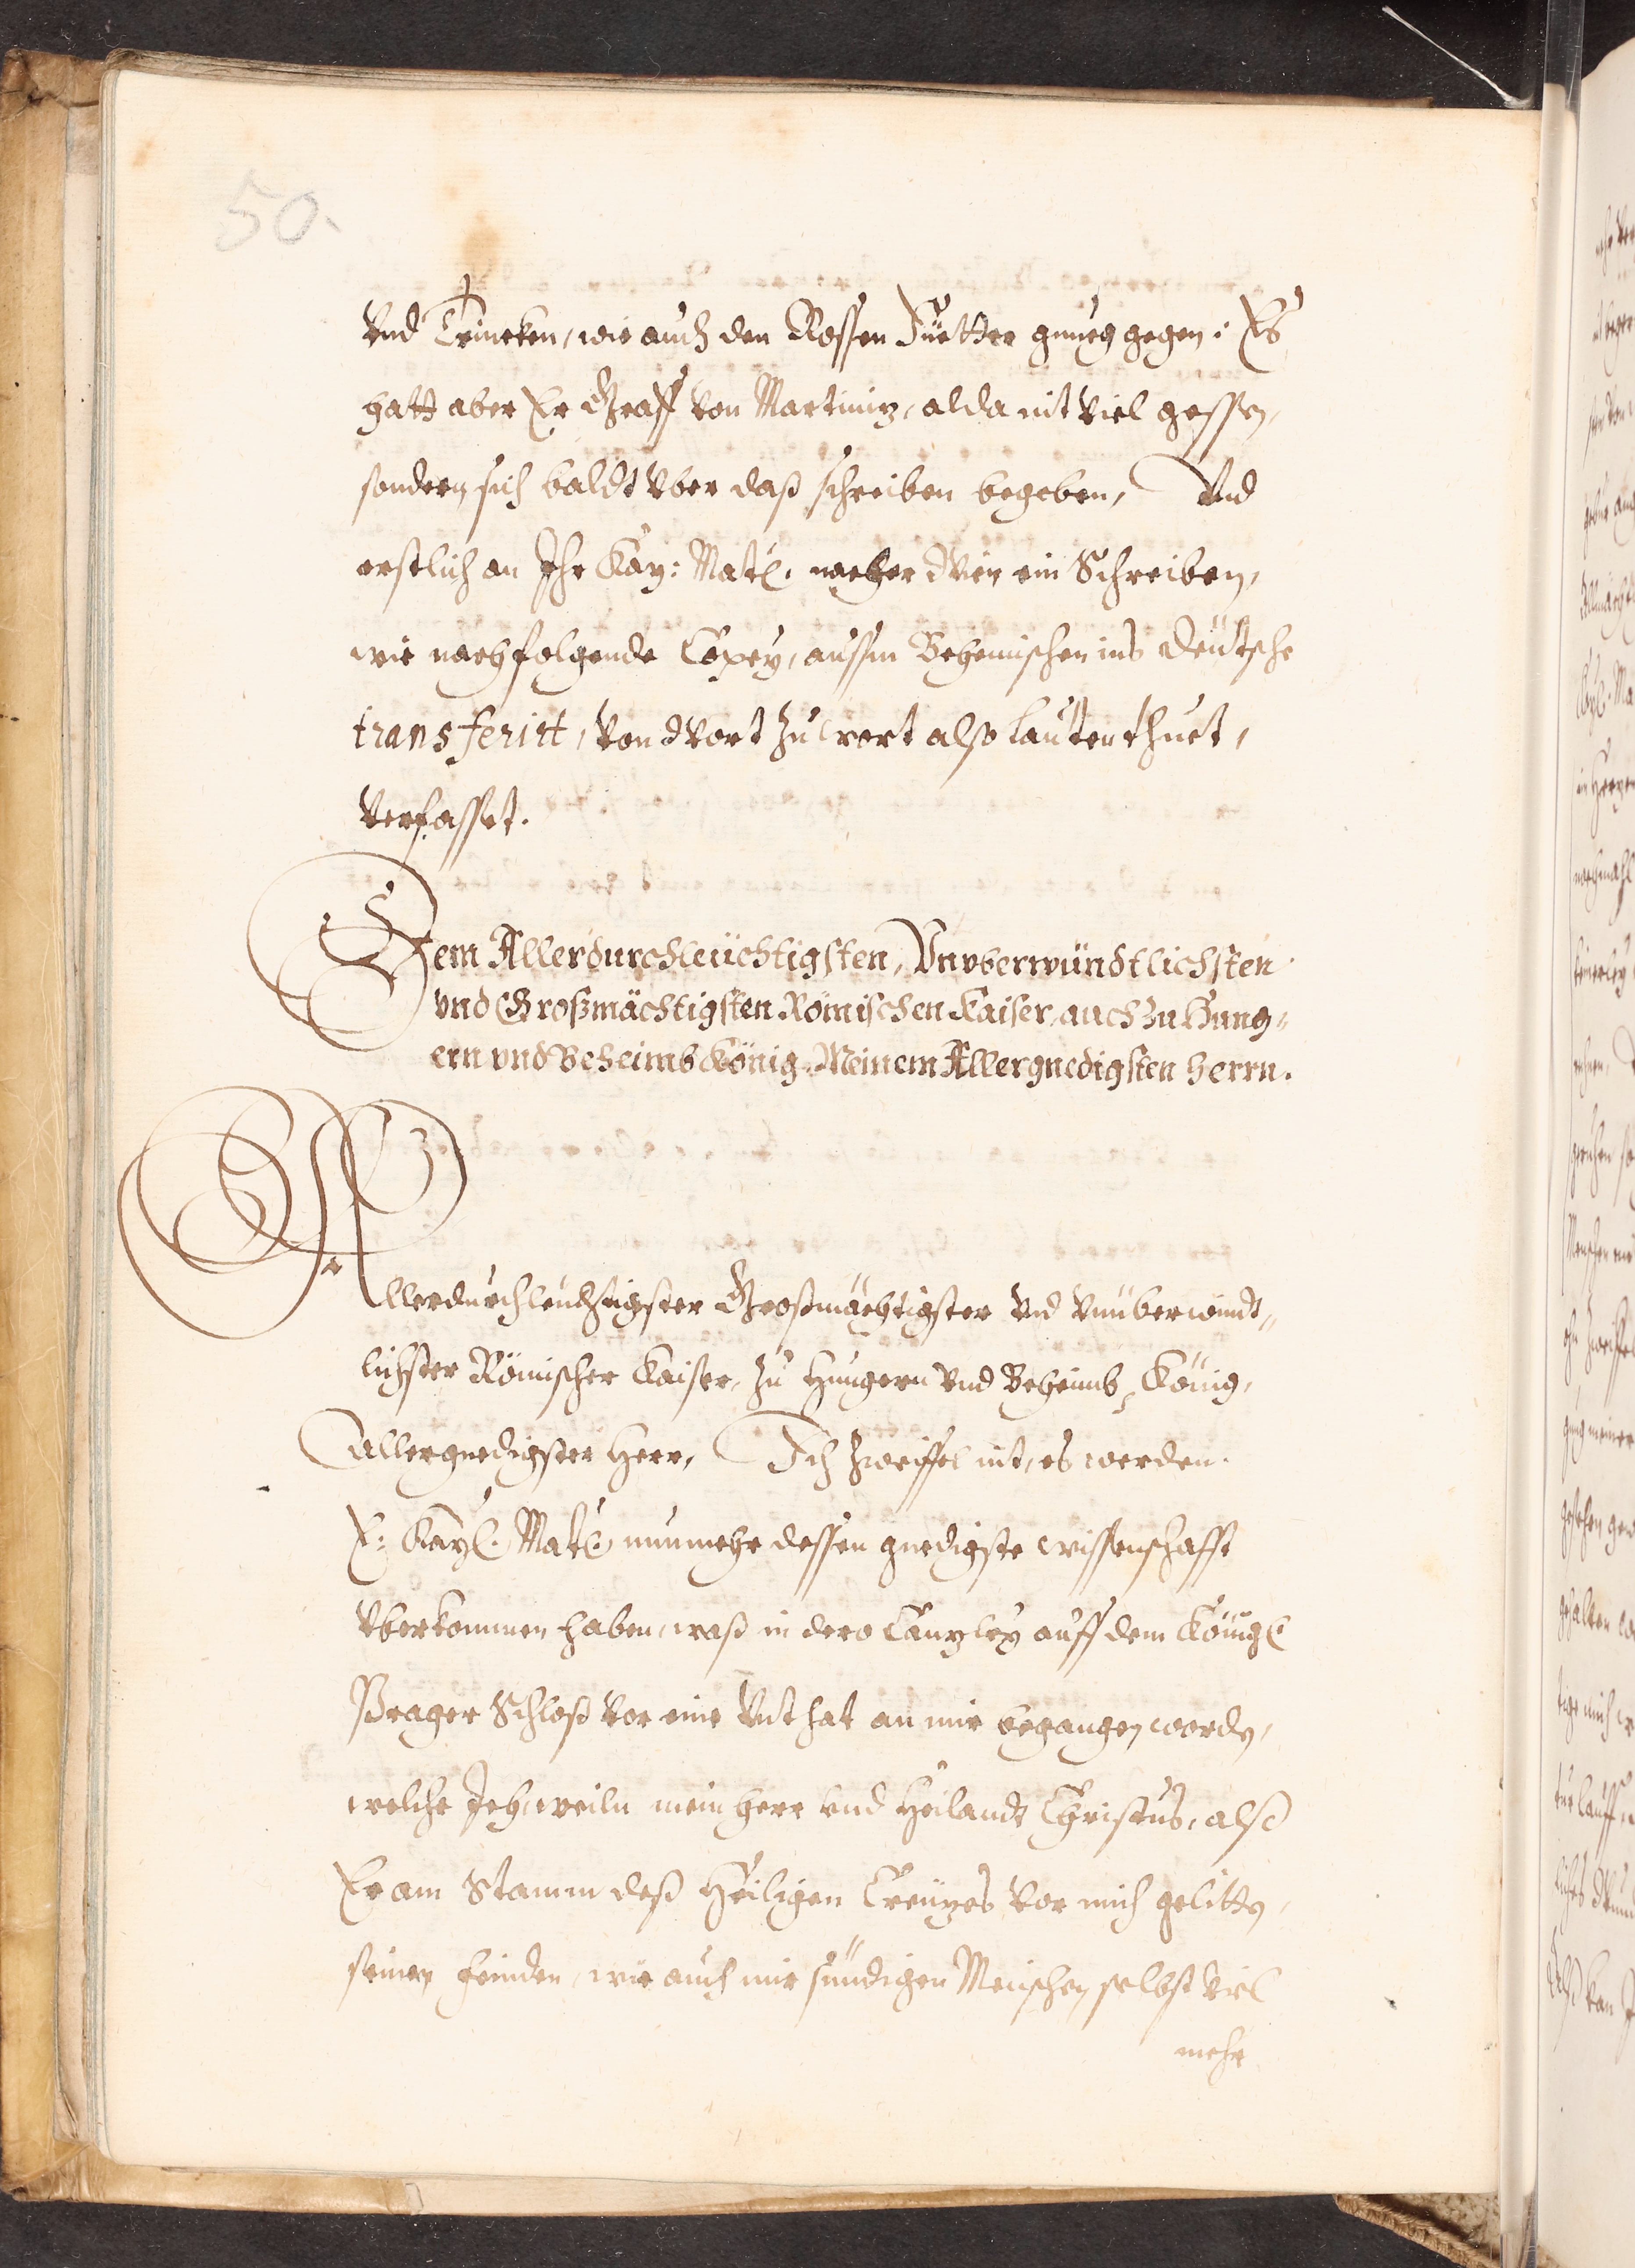 50.
vnd Trincken, wie auch den Rossen Fuetter gnueg gegen: Es
hatt aber Er Graff von Martiniz, alda nit viel gessen,
sondern sich baldt vber daß schreiben begeben, Vnd
erstlich an Ihr Kay: Matt. nacher Wien ein Schreiben,
wie nachfolgende Copey, aussm Behemischen ins deütsche
transferirt, von Wort zu wort also lauten thuet,
verfasset.
Dem Allerdurchleüchtigsten, Vnvberwündtlichsten
vnd Großmächtigsten Römischen Kaiser, auch zu Hung-
ern vnd Beheimb König, Meinem Allergnedigsten Herrn.
Allerdurchleuchtigster Großmächtigster vnd vnüberwindt-
lichster Römischer Kaiser, zu Hungern vnd Beheimb König,
Allergnedigster Herr, Ich zweiffel nit, es werden
E: Kayl. Matt. nunmehr dessen gnedigste wissenschafft
vberkommen haben, waß in dero Canzley auff dem Königl
Prager Schloß vor eine Vnthat an mir begangen worden,
welche Ich, weiln mein Herr vnd Heilandt Christus, alß
Er am Stamm deß Heiligen Creüzes vor mich gelitten,
seinen Feinden, wie auch mir sündigen Menschen selbst viel
mehr